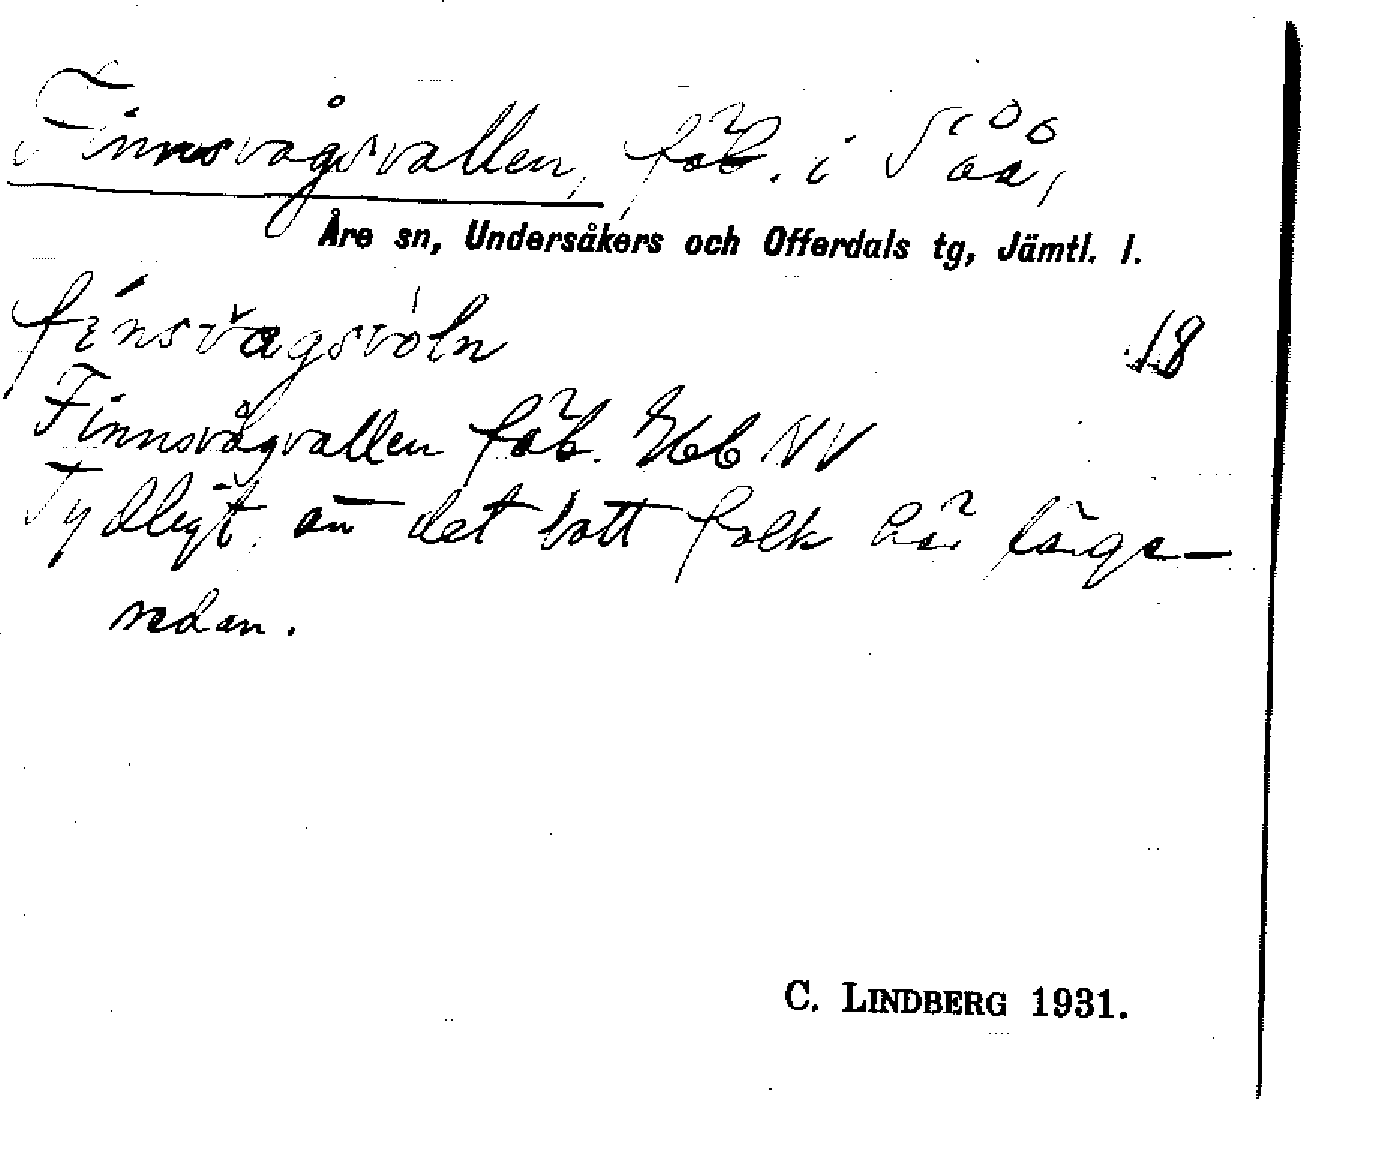 Finnsvågsvallen, fäb. i Såå,
Åre sn, Undersåkers och Offerdals tg, Jämtl. l.
fínsvagsvóln
18
Finnsvågvallen fäb. NV
Tydligt, att det bott folk här länge-
sedan.
C. LINDBERG 1931.